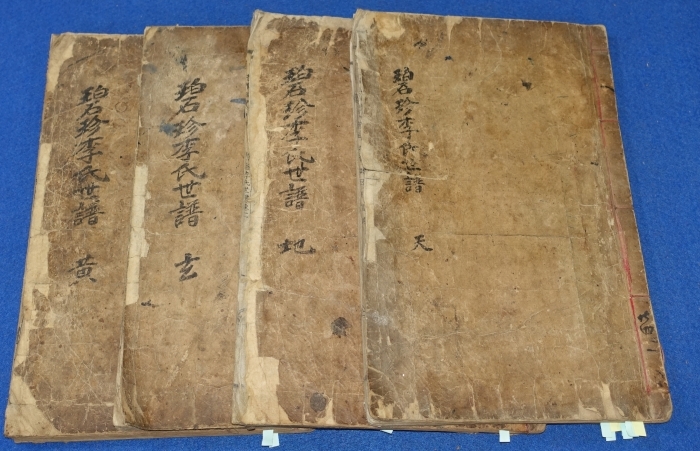 碧珍李氏世譜 天
碧珍李氏世譜 地
碧珍李氏世譜 玄
碧珍李氏世譜 黃